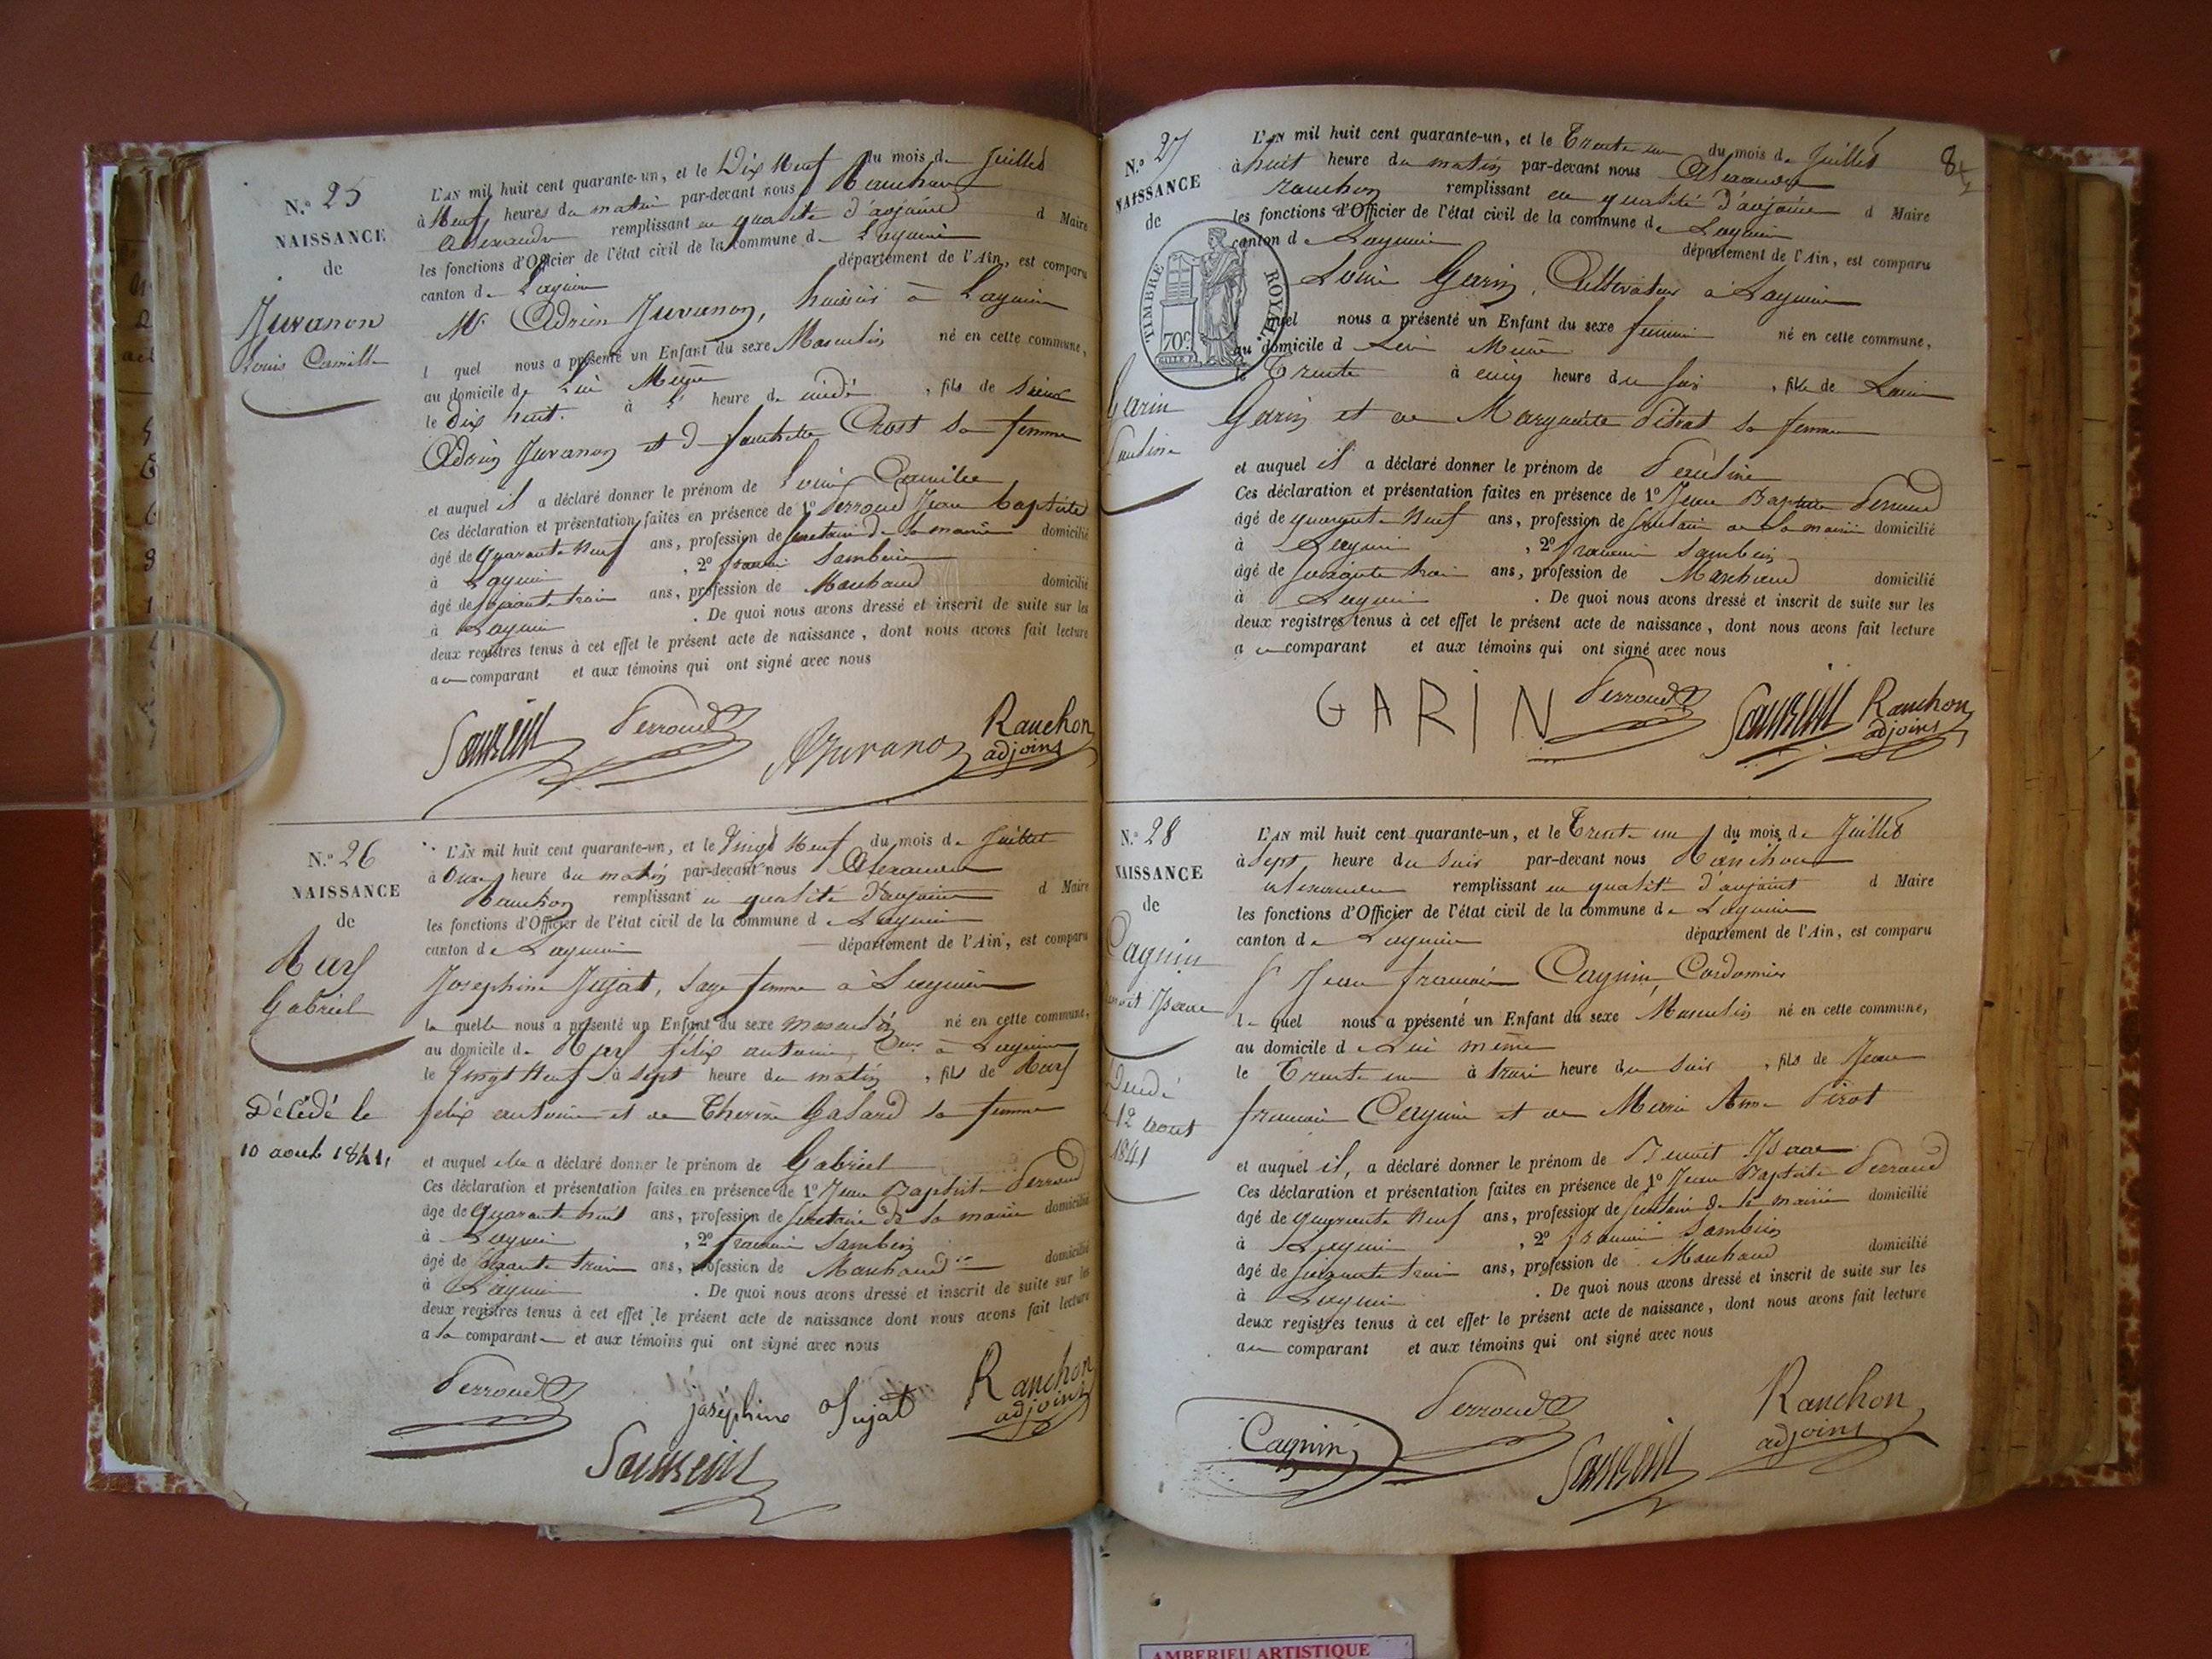 N.° 25
NAISSANCE
de
Juvanon
Louis Camille
L'AN mil huit cent quarante-un, et le Dix Neuf du mois de Juillet
à Neuf heures du matin par-devant nous Ranchon
Alexandre remplissant en qualité d'adjoint d Maire
les fonctions d'Officier de l'état civil de la commune de Lagnieu
canton de Lagnieu département de l'Ain, est comparu
Mr Adrien Juvanon, huissier à Lagnieu
l quel nous a présenté un Enfant du sexe Masculin né en cette commune,
au domicile de Lui Même
le Dix huit à heure de midi, fils de Sieur
Adrien Juvanon et d fanchette Crost sa femme
et auquel il a déclaré donner le prénom de Louis Camille
Ces déclaration et présentation faites en présence de 1° Perroud Jean baptiste
âgé de quarante Neuf ans, profession de secrétaire de la mairie domicilié
à Lagnieu, 2°
âgé de soixante trois ans, profession de Marchand domicilié
à Lagnieu. De quoi nous avons dressé et inscrit de suite sur les
deux registres tenus à cet effet le présent acte de naissance, dont nous avons fait lecture
au comparant et aux témoins qui ont signé avec nous
Perroud
AJuvanon
Ranchon
adjoint
N.° 26
NAISSANCE
de
Ruf
Gabriel
Décédé le
10 aout 1841.
L'AN mil huit cent quarante-un, et le Vingt Neuf du mois de Juillet
à Onze heure du matin par-devant nous Alexandre
Ranchon remplissant en qualité d'adjoint d Maire
les fonctions d'Officier de l'état civil de la commune d e Lagnieu
canton de Lagnieu département de l'Ain, est comparu
Josephine Jujat, Sage femme à Lagnieu
la quelle nous a présenté un Enfant du sexe masculin né en cette commune,
au domicile de Ruf félix antoine à Lagnieu
le Vingt Neuf à sept heure du matin, fils de Ruf
félix antoine et de Therèse Galand sa femme
et auquel elle a déclaré donner le prénom de Gabriel
Ces déclaration et présentation faites en présence de 1° Jean Baptiste Perroud
âgé de quarante huit ans, profession de secretaire de la mairie domicilié
à Lagnieu, 2°
âgé de soixante trois ans, profession de Marchand domicilié
à Lagnieu. De quoi nous avons dressé et inscrit de suite sur les
deux registres tenus à cet effet le présent acte de naissance dont nous avons fait lecture
a la comparante et aux témoins qui ont signé avec nous
Perroud
joséphine Jujat
Ranchon
adjoint
N.° 27
NAISSANCE
de
TIMBRE ROYAL
70c
Garin
Pauline
L'AN mil huit cent quarante-un, et le Trente un du mois de Juillet
à huit heure du matin par-devant nous Alexandre
ranchon remplissant en qualité d'adjoint d Maire
les fonctions d'Officier de l'état civil de la commune de Lagnieu
canton d e Lagnieu département de l'Ain, est comparu
Louis Garin, Cultivateur à Lagnieu
quel nous a présenté un Enfant du sexe féminin né en cette commune,
au domicile d Lui Même
le Trente à cinq heure du soir, fille de Louis
Garin et de Marguerite Pitrat sa femme
et auquel il a déclaré donner le prénom de Pauline
Ces déclaration et présentation faites en présence de 1° Jean Baptiste Perroud
âgé de quarante Neuf ans, profession de secretaire de la mairie domicilié
à Lagnieu, 2°
âgé de soixante trois ans, profession de Marchand domicilié
à Lagnieu. De quoi nous avons dressé et inscrit de suite sur les
deux registres tenus à cet effet le présent acte de naissance, dont nous avons fait lecture
a u comparant et aux témoins qui ont signé avec nous
GARIN
Perroud
Ranchon
adjoint
N.° 28
NAISSANCE
de
Cagnin
Benoit Isaac
Décédé
12 aout
1841
L'AN mil huit cent quarante-un, et le Trente un du mois de Juillet
à Sept heure du Soir par-devant nous Ranchon
alexandre remplissant en qualité d'adjoint d Maire
les fonctions d'Officier de l'état civil de la commune de Lagnieu
canton de Lagnieu département de l'Ain, est comparu
Sr Jean francois Cagnin, Cordonnier
le quel nous a présenté un Enfant du sexe Masculin né en cette commune,
au domicile d e Lui même
le Trente un à trois heure du Soir, fils de Jean
francois Cagnin et de Marie Anne Pirot
et auquel il, a déclaré donner le prénom de Benoit Isaac
Ces déclaration et présentation faites en présence de 1° Jean Baptiste Perroud
âgé de quarante Neuf ans, profession de secretaire de la mairie domicilié
à Lagnieu, 2°
âgé de soixante trois ans, profession de Marchand domicilié
à Lagnieu. De quoi nous avons dressé et inscrit de suite sur les
deux registres tenus à cet effet le présent acte de naissance, dont nous avons fait lecture
au comparant et aux témoins qui ont signé avec nous
Cagnin
Perroud
Ranchon
adjoint
AMBERIEU ARTISTIQUE